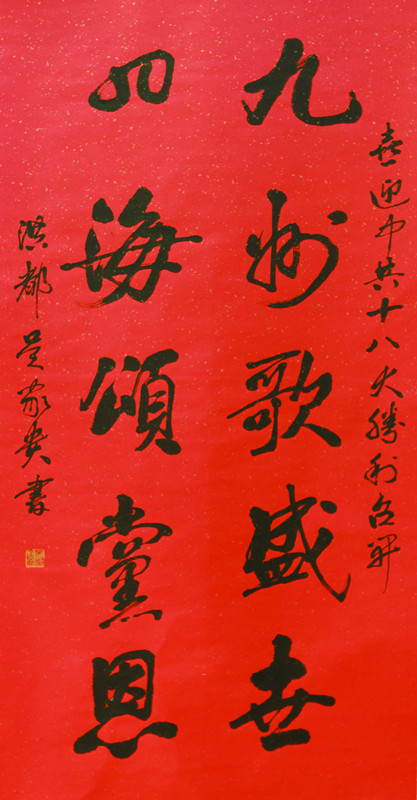 喜迎中共十八大勝利召開
九州歌盛世
四海頌黨恩
洪都吳家貴書